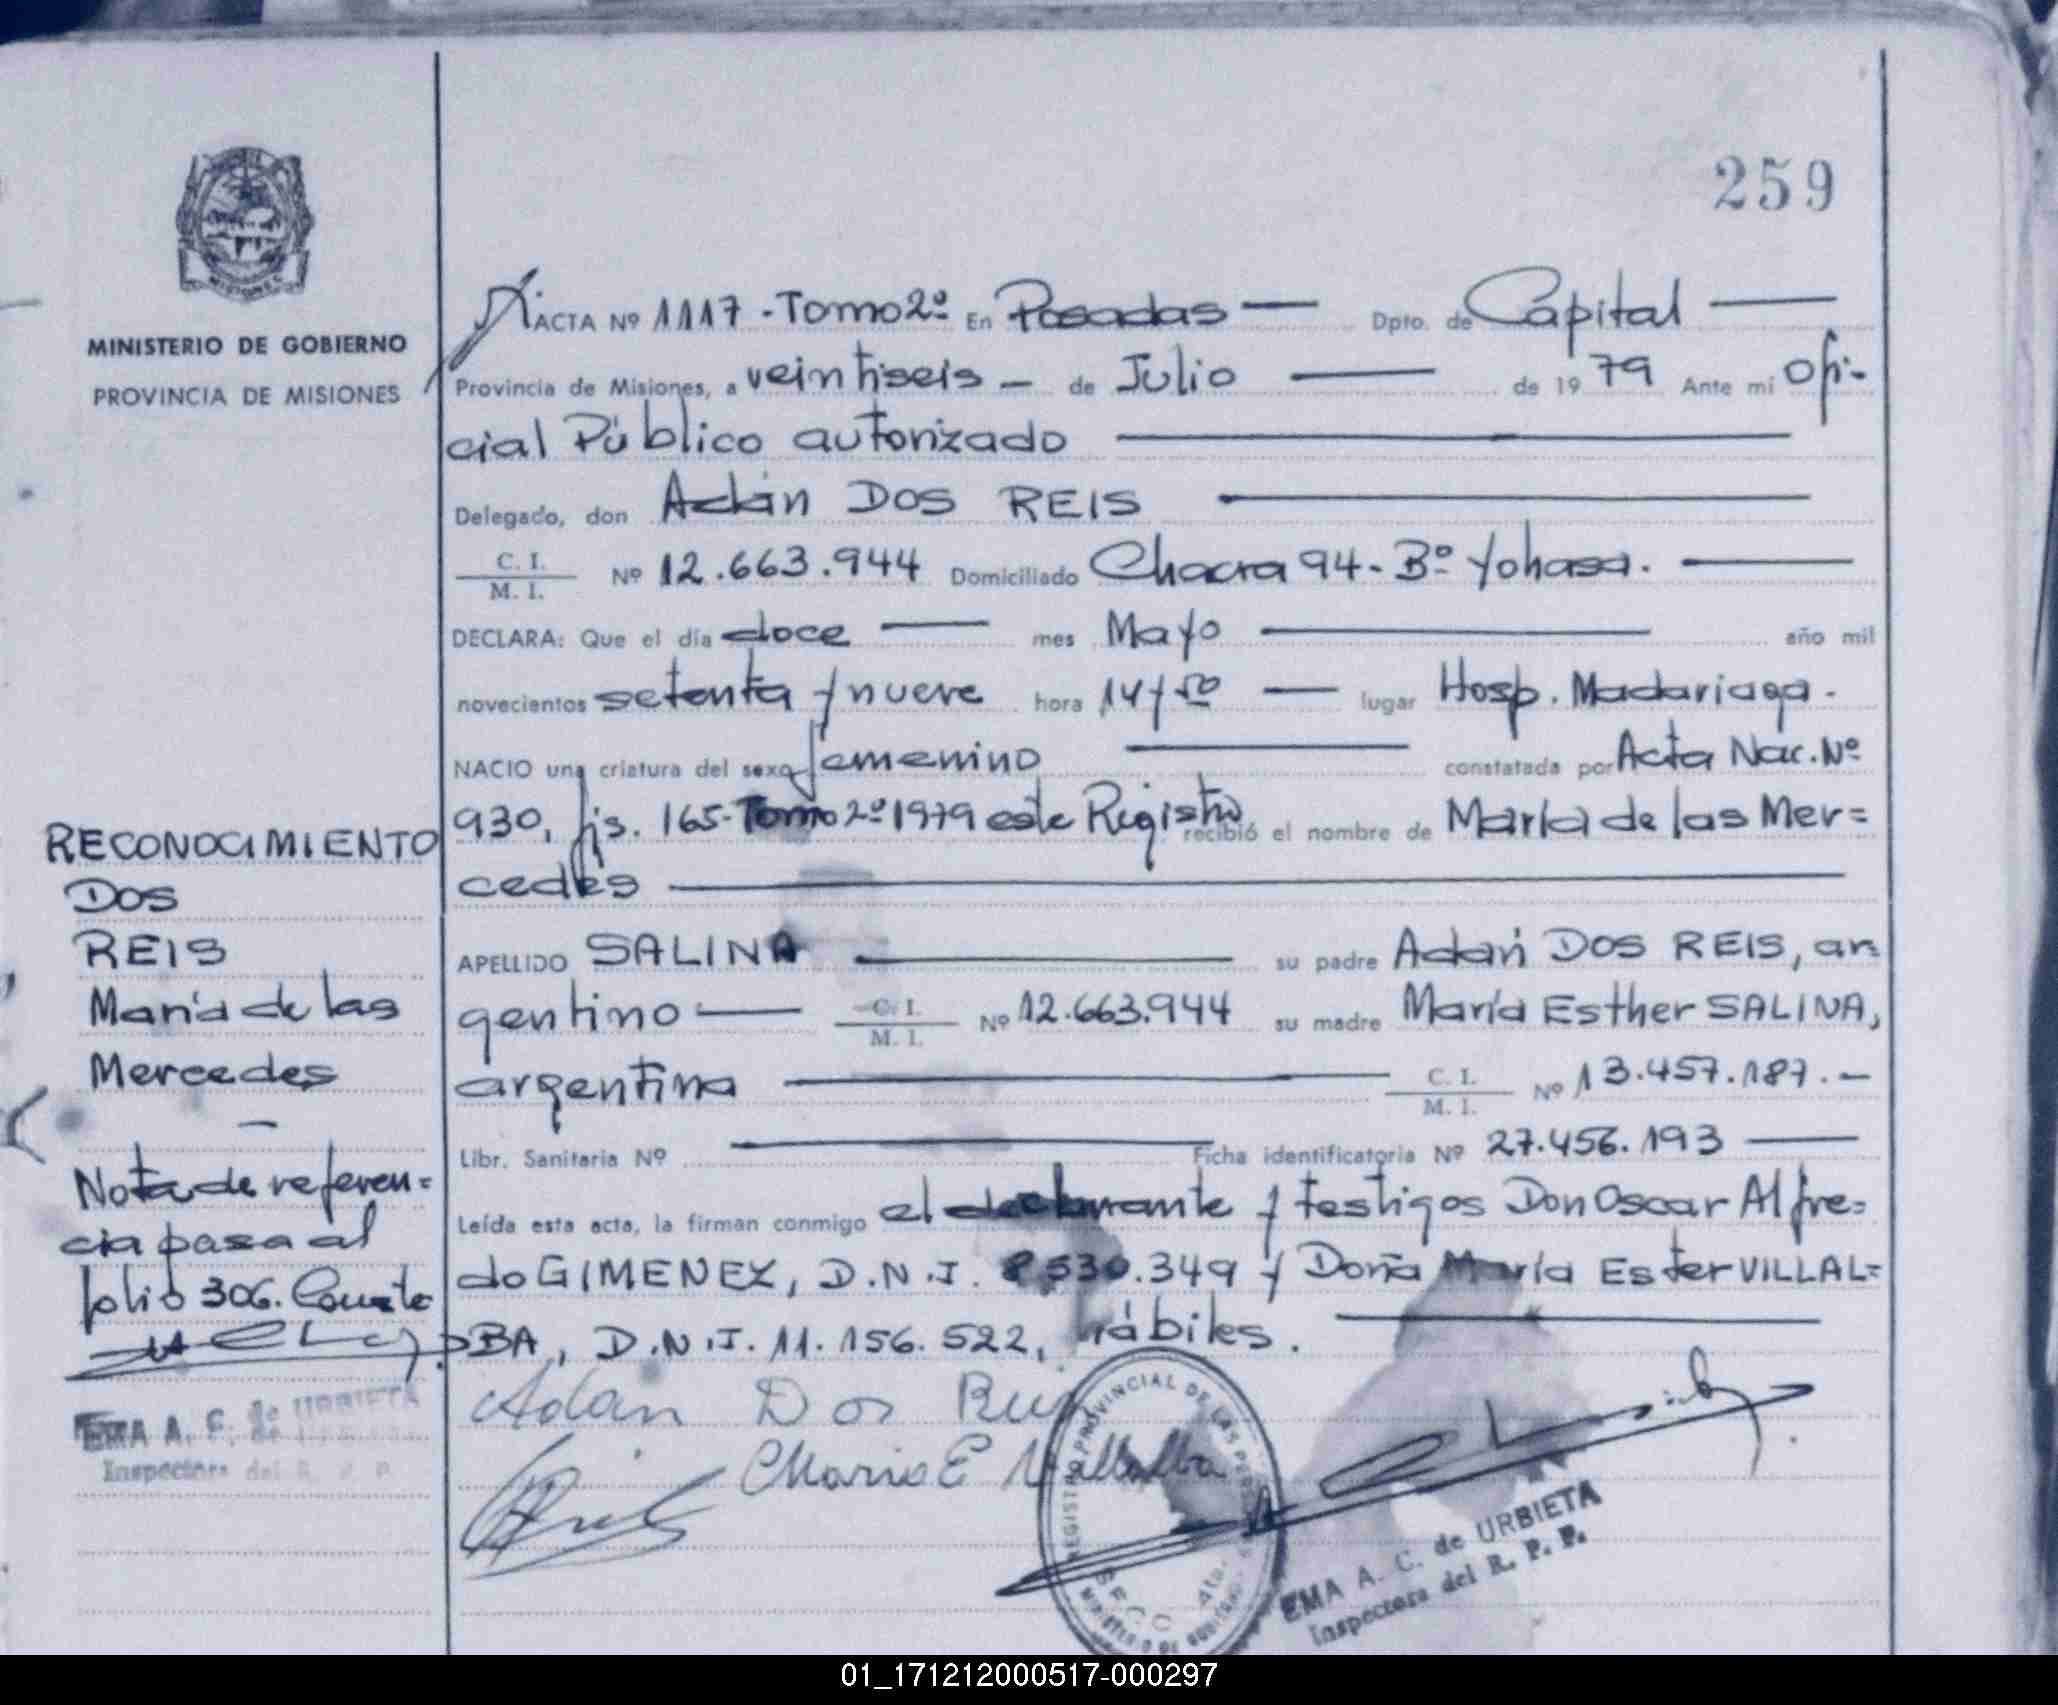 259
MINISTERIO DE GOBIERNO
PROVINCIA DE MISIONES
ACTA Nº 1117 - Tomo 2º En Posadas — Dpto. de Capital —
Provincia de Misiones, a veintiseis — de Julio — de 19 79 Ante mí Ofi-
cial Público autorizado —
Delegado, don Adán DOS REIS —
C. I.
M. I. Nº 12.663.944 Domiciliado Chacra 94 - Bº Yohasa. —
DECLARA: Que el día doce — mes Mayo — año mil
novecientos setenta y nueve hora 14 y 50 — lugar Hosp. Madariaga.
NACIO una criatura del sexo femenino — constatada por Acta Nac. Nº
930, fjs. 165 - Tomo 2º 1979 este Registro recibió el nombre de María de las Mer=
cedes —
APELLIDO SALINA — su padre Adán DOS REIS, ar=
gentino — C. I. M. I. Nº 12.663.944 su madre María Esther SALINA,
argentina — C. I. M. I. Nº 13.457.187.-
Libr. Sanitaria Nº — Ficha identificatoria Nº 27.456.193 —
Leída esta acta, la firman conmigo el declarante y testigos Don Oscar Alfre=
do GIMENEZ, D.N.I. 8.530.349 y Doña María Ester VILLAL=
BA, D.N.I. 11.156.522, hábiles. —
RECONOCIMIENTO
DOS
REIS
María de las
Mercedes
—
Nota de referen=
cia pasa al
folio 306. Conste
EMA A. C. de URBIETA
Inspectora del R. P. P.
Adan Dos Reis
Maria E Villalba
REGISTRO PROVINCIAL DE LAS PERSONAS
MINISTERIO DE GOBIERNO
EMA A. C. de URBIETA
Inspectora del R. P. P.
01_171212000517-000297